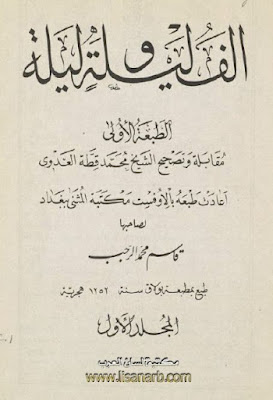 ألف ليلة وليلة
الطبعة الأولى
مقابلة وتصحيح الشيخ محمد قطة العدوي
أعادت طبعه بالأوفست مكتبة المثنى ببغداد
لصاحبها
قاسم محمد الرجب
طبع بمطبعة بولاق سنة ١٢٥٢ هجرية
المجلد الأول
مكتبة لسان العرب
www.lisanarb.com